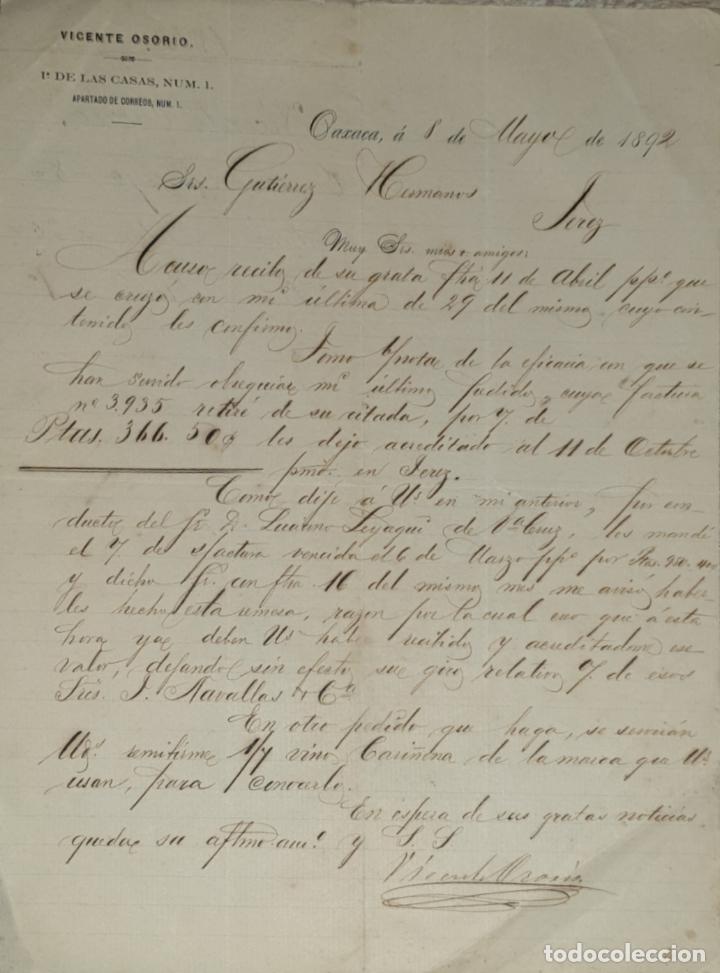 VICENTE OSORIO.
1ª DE LAS CASAS, NUM. 1.
APARTADO DE CORREOS, NUM. 1.
Oaxaca, á 8 de Mayo de 1892
Srs. Gutiérrez Hermanos
Jerez
Muy Srs. mios y amigos:
Acuso recibo de su grata fha 11 de Abril ppº. que
se cruzó con mi última de 29 del mismo, cuyo con-
tenido les confirmo.
Tomo nota de la eficacia con que se
han servido obsequiar mi último pedido, cuya factura
nº 3.935 retiré de su citada, por
Ptas. 366.50 les dejo acreditado al 11 de Octubre
pmo. en Jerez.
Como dije á Us en mi anterior, por con-
ducto del Sr. D. de Va Cruz, les mandé
el de s/factura vencida el 6 de Marzo ppº por Ptas. 950.
y dicho Sr. con fha. 16 del mismo mes me avisó haber-
les hecho esta remesa, razon por la cual creo que á esta
hora ya deben Us haber recibido y acreditadome ese
valor, dejando sin efecto su giro relativo de esos
Sres. J. Navallas y Ca
En otro pedido que haga, se servirán
Uds. remitirme vino Cariñena de la marca que Us.
usan, para conocerlo.
En espera de sus gratas noticias
queda su aftmo. am.º y S. S
Vicente Osorio
todocoleccion